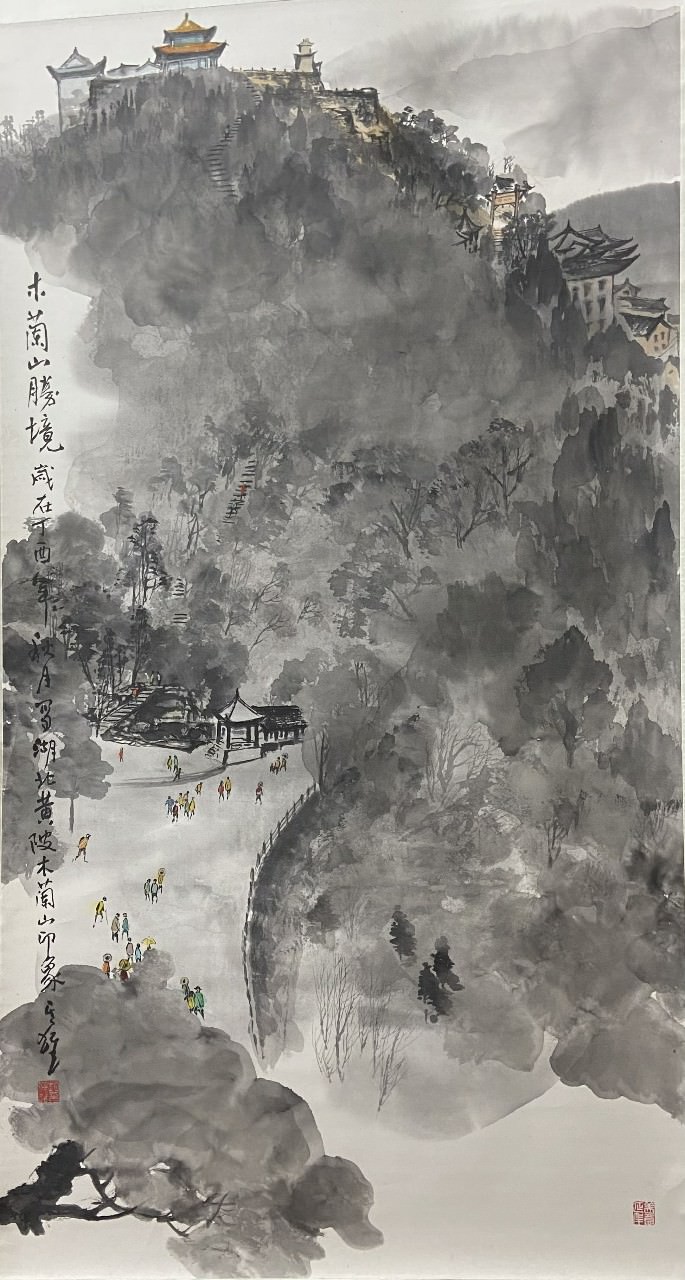 木蘭山勝境 歲在丁酉年秋月寫湖北黄陂木蘭山印象